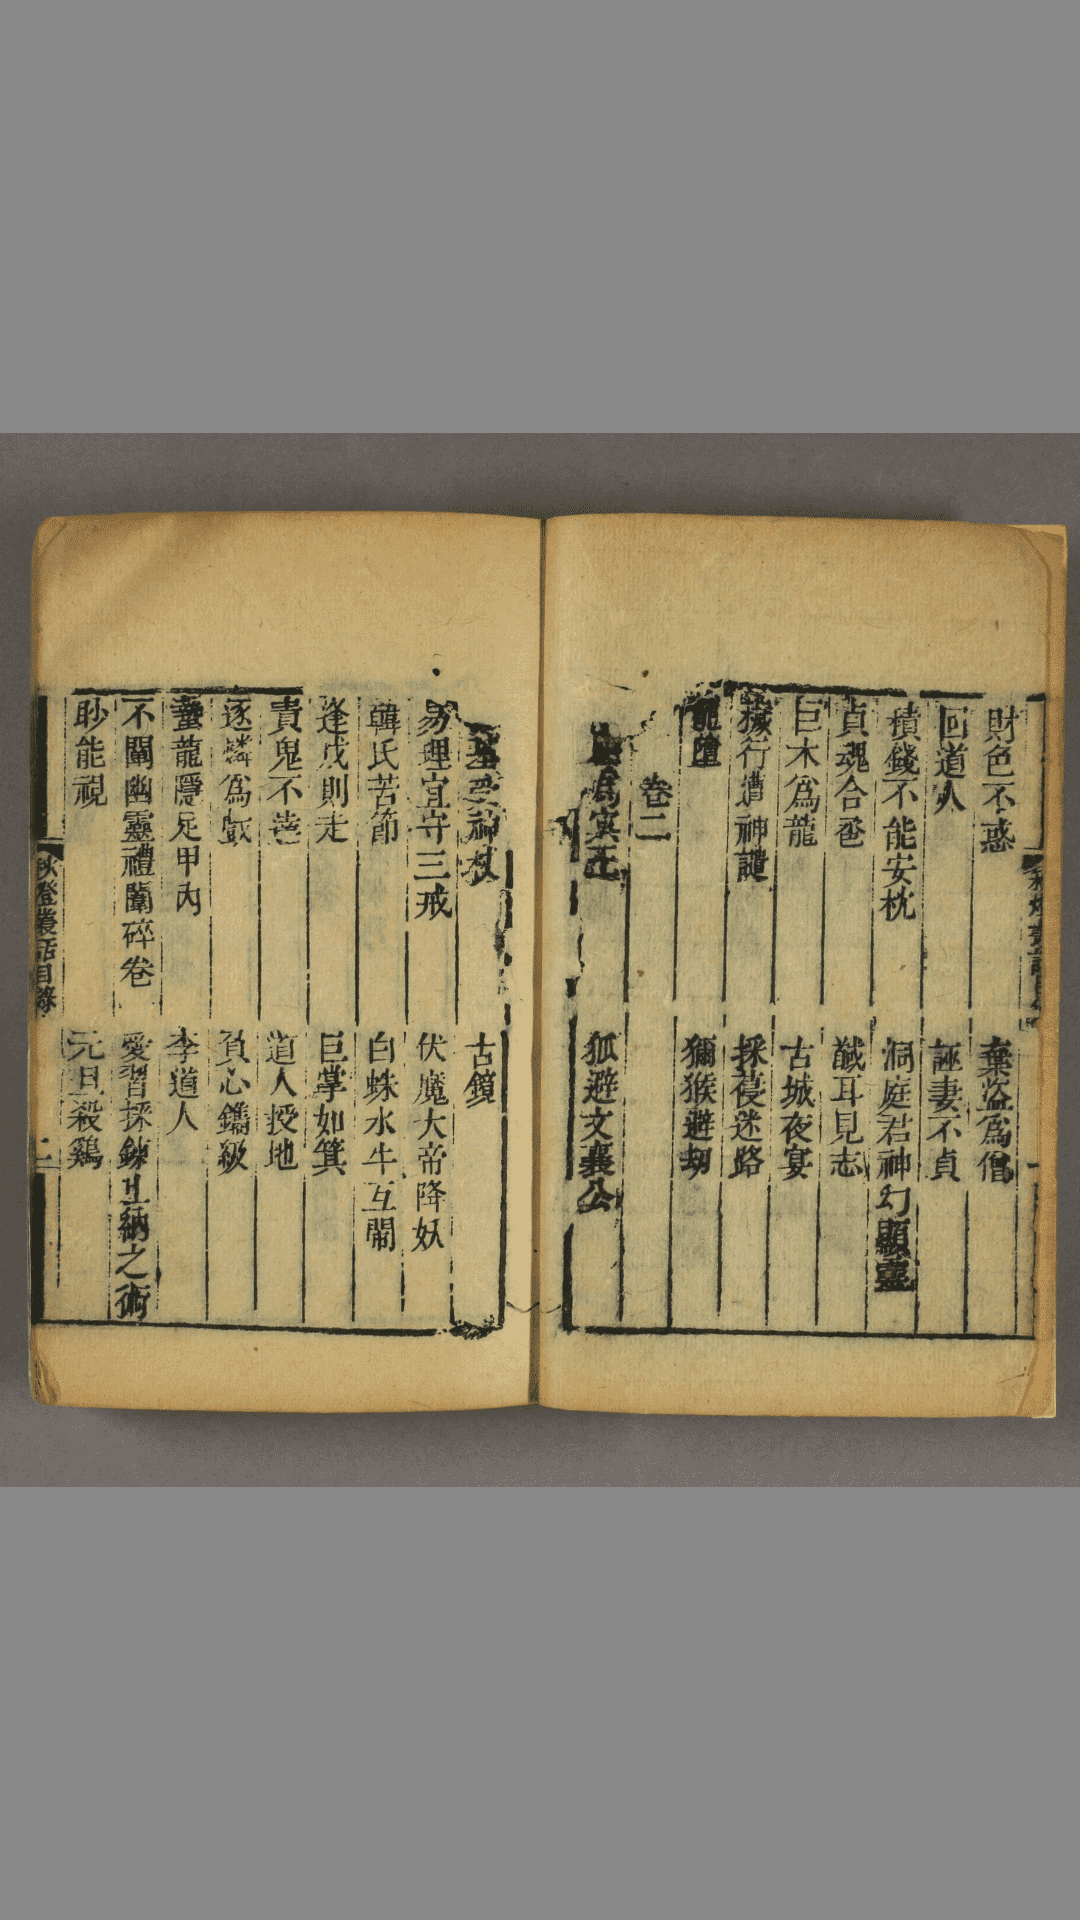 財色不惑
棄盜為僧
回道人
誣妻不貞
積錢不能安枕
洞庭君神幻顯靈
貞魂合卺
馘耳見志
巨木為龍
古城夜宴
穢行遭神譴
採葠迷路
龍墮
獼猴避劫
卷二
為冥王
狐避文襄公
神杖
古鏡
易理宜守三戒
伏魔大帝降妖
韓氏苦節
白蛛水牛互鬭
逢戌則走
巨掌如箕
責鬼不善
道人授地
逐燐為戲
負心鐫級
蟄龍隱足甲內
李道人
不闈幽靈禮闈碎卷
愛習採鍊吐納之術
眇能視
元旦殺鷄
秋燈叢話目錄
二